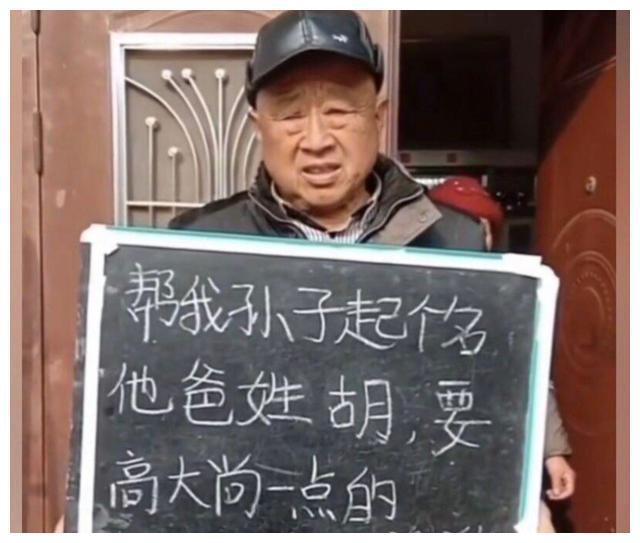 帮我孙子起个名
他爸姓胡,要
高大尚一点的